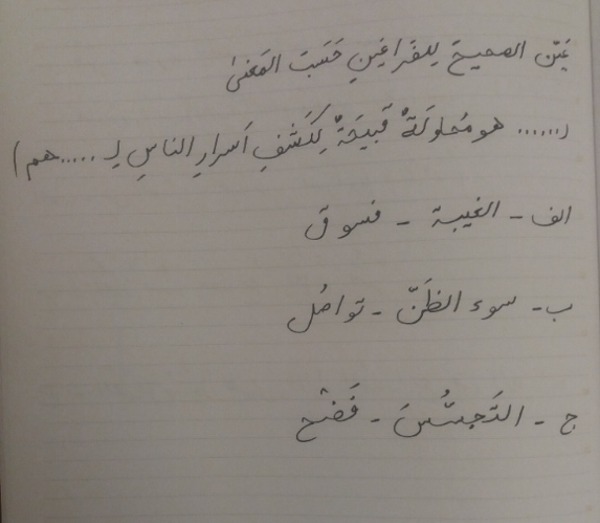 عَيِّن الصحيحَ لِلفَراغَينِ حَسَبَ المَعنیٰ
(...... هو مُحاولَةٌ قَبيحَةٌ لِكَشفِ اَسرارِ الناسِ لِـ .....هم)
الف - الغيبة - فسوق
ب - سوء الظَنّ - تواصُل
ج - التَّجسُّسَ - فَضْح